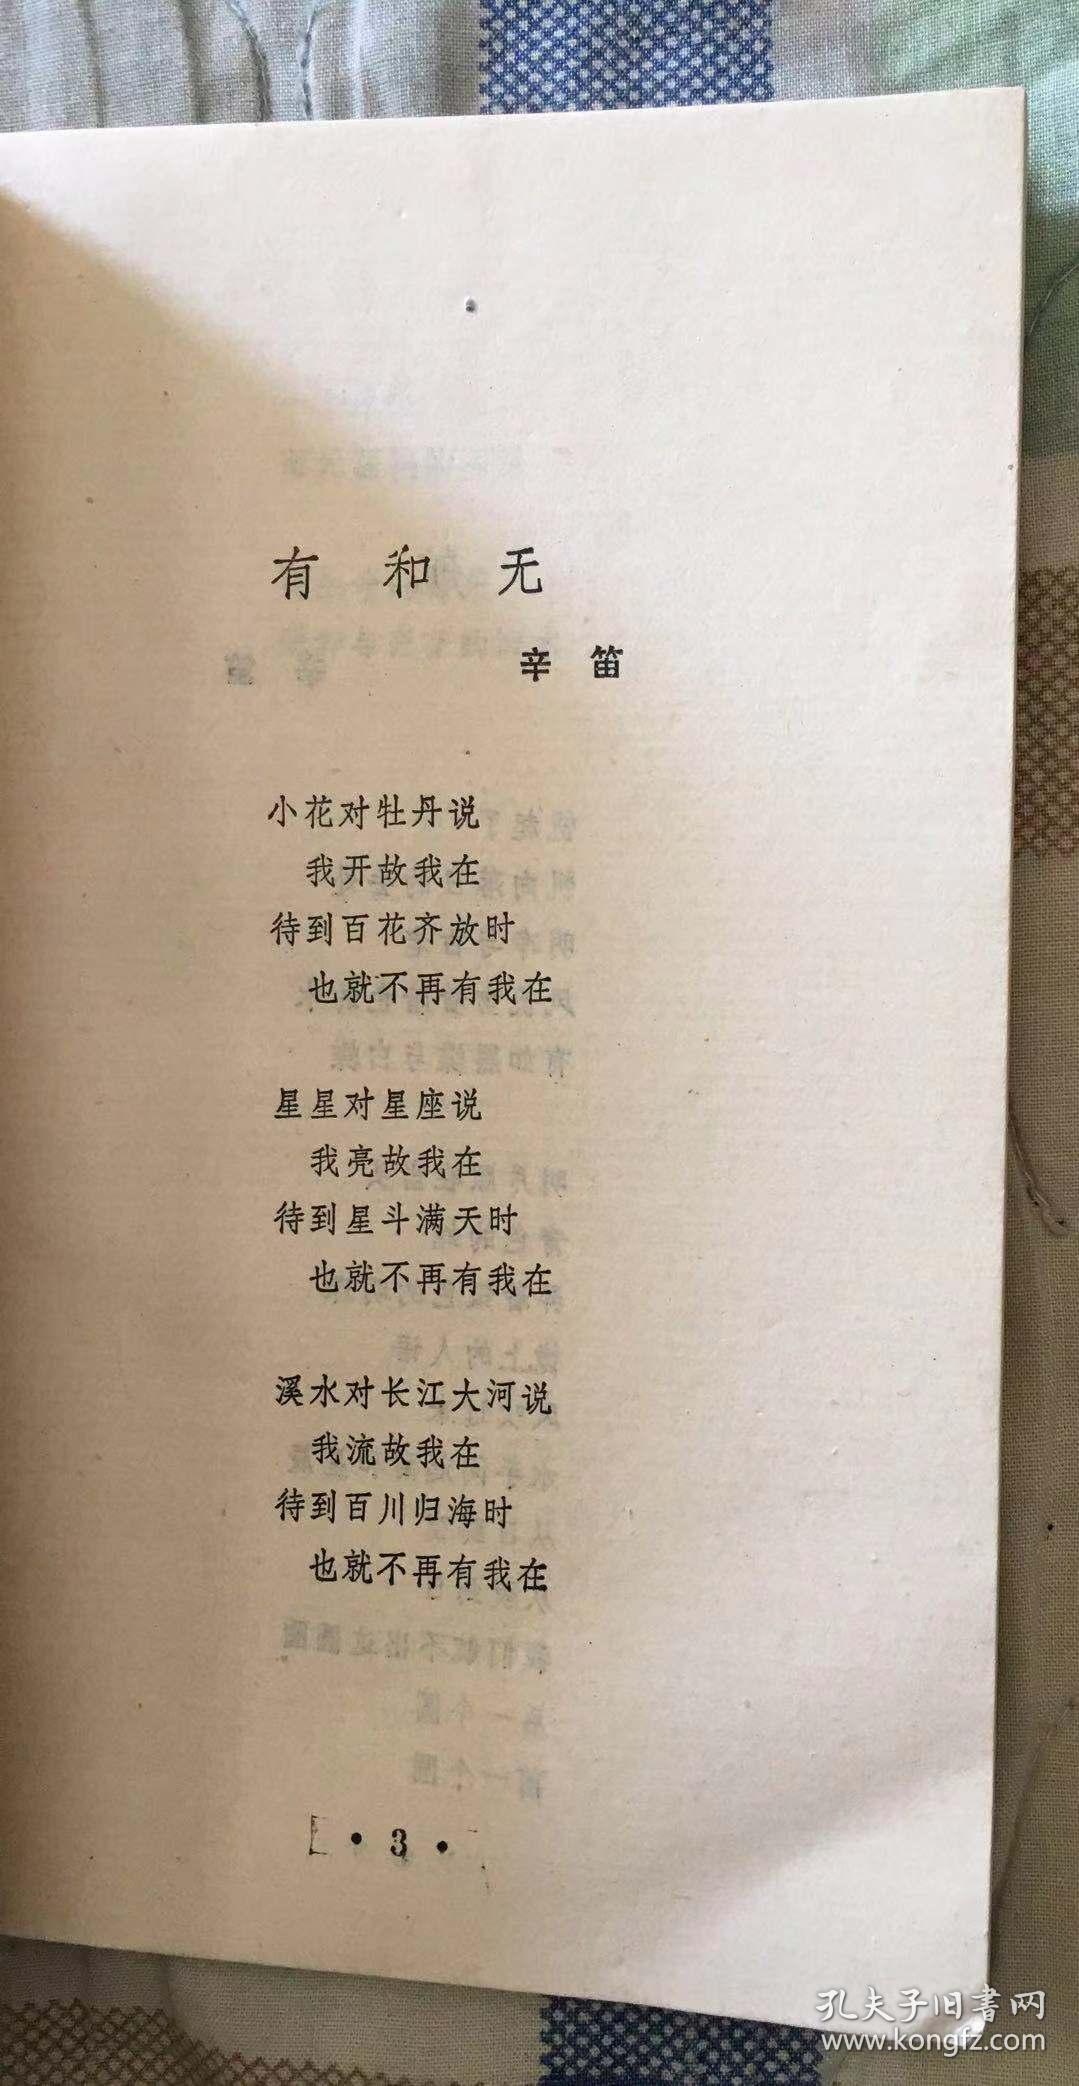 有和无
辛笛
小花对牡丹说
我开故我在
待到百花齐放时
也就不再有我在
星星对星座说
我亮故我在
待到星斗满天时
也就不再有我在
溪水对长江大河说
我流故我在
待到百川归海时
也就不再有我在
·3·
孔夫子旧書网
www.kongfz.com